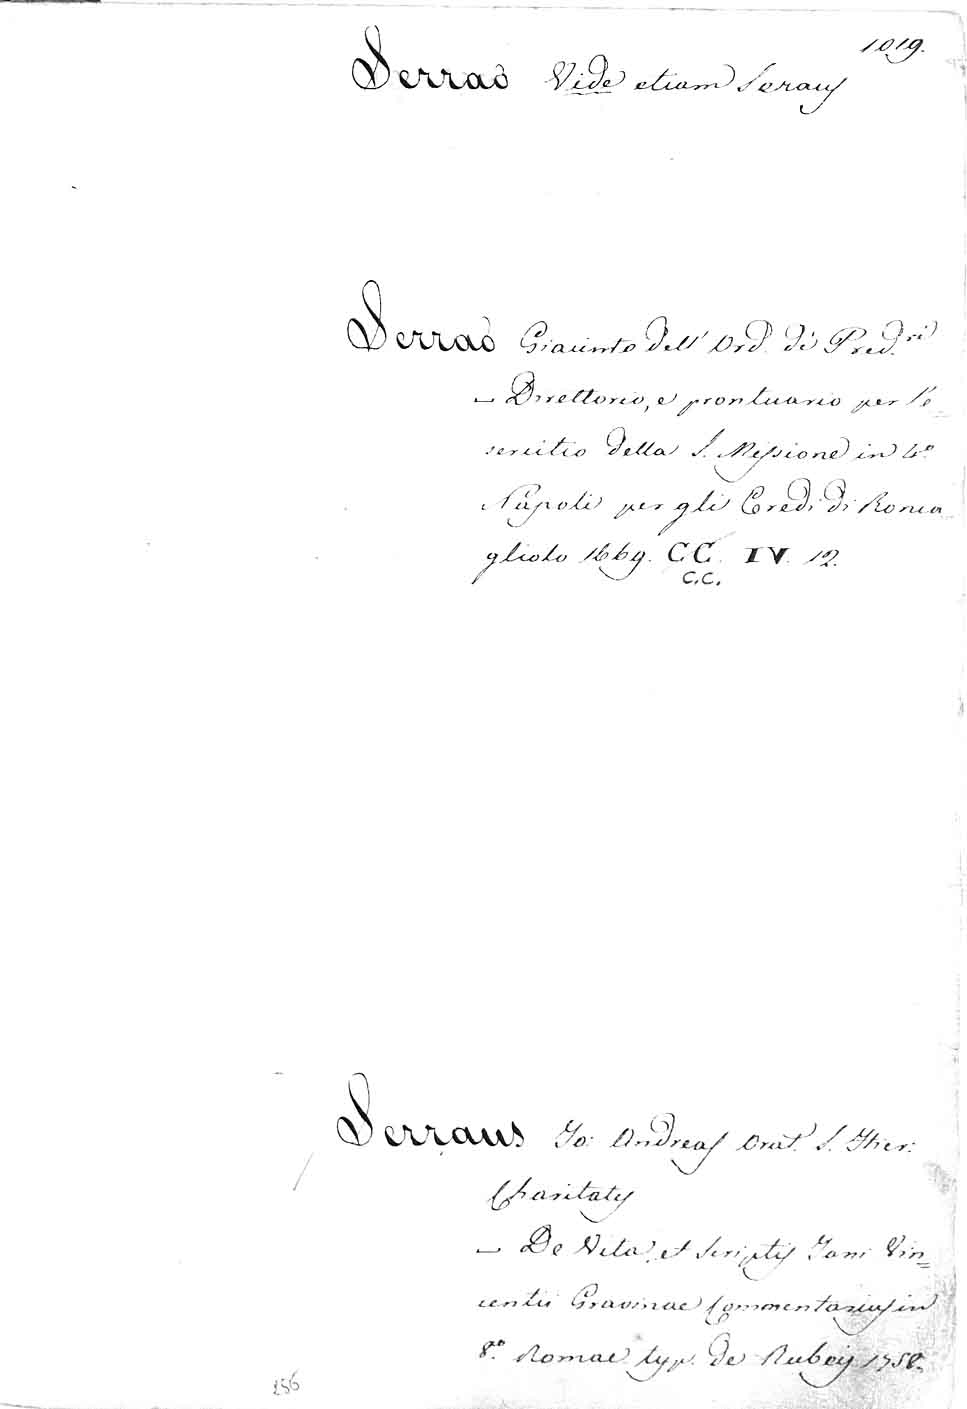 1019.
Serrao Vide etiam Seraus
Serrao Giacinto dell' Ord. di Pred.ri
– Direttorio, e prontuario per l'e=
sercitio della S. Missione in 4.o
Napoli per gli Eredi di Ronca=
gliolo 1669. CC. IV. 12.
C.C.
Serraus Jo: Andreas Orat. S. Hier:
Charitatis
– De Vita, et Scriptis Jani Vin=
centii Gravinae Commentarius in
8.o Romae typ. de Rubeis 1758.
256